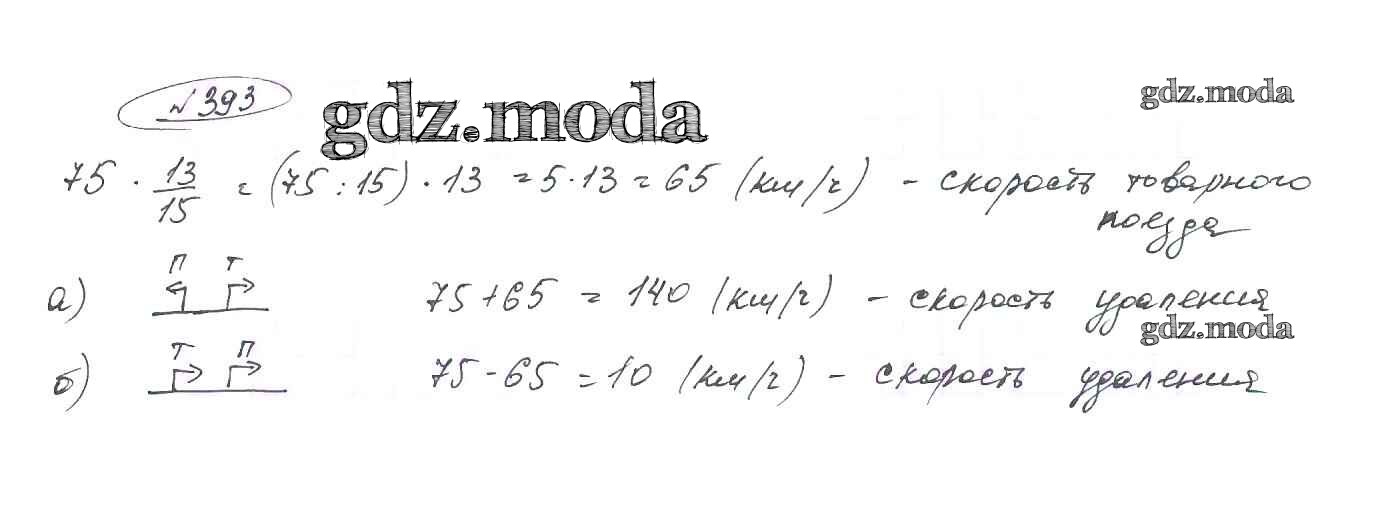 № 393
gdz.moda
gdz.moda
75 · 13/15 = (75 : 15) · 13 = 5 · 13 = 65 (км/ч) - скорость товарного
поезда
П Т
а) 75 + 65 = 140 (км/ч) - скорость удаления
gdz.moda
Т П
б) 75 - 65 = 10 (км/ч) - скорость удаления